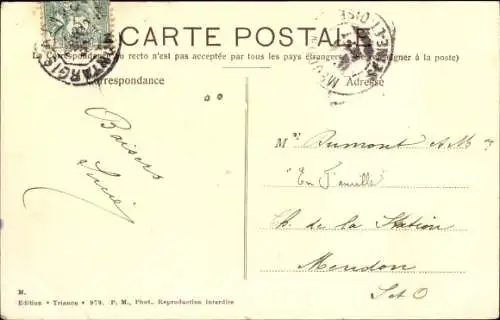 CARTE POSTALE
La Correspondance au recto n'est pas acceptée par tous les pays étrangers (se renseigner à la poste)
Correspondance
Adresse
MONTARGIS
SEINE-ET-OISE
Baisers
Lucie
Mr Dumont A. M.
"En Famille"
Ch. de la Station
Meudon
S et O
M.
Edition • Trianon • 979. P. M., Phot. Reproduction interdite